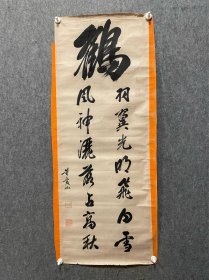 鶴
羽翼光明欺白雪
風神灑落占高秋